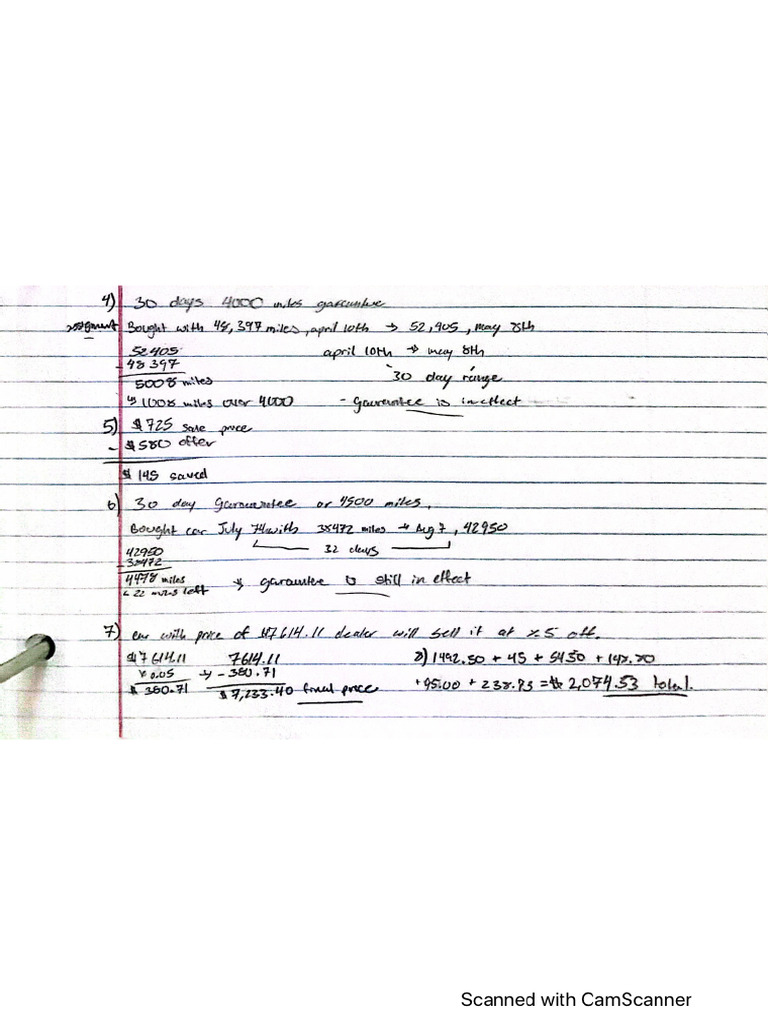 4) 30 days 4000 miles garauntee
Bought with 48,397 miles, april 10th → 52,905, may 8th
52405 april 10th → may 8th
- 48397 30 day range
5008 miles
↳ 1008 miles over 4000 - gaurantee is in effect
5) $725 sale price
- $580 offer
$145 saved
6) 30 day garauntee or 4500 miles.
Bought car July 7th with 38472 miles → Aug 7, 42950
42950 32 days
- 38472
4478 miles → garauntee is still in effect
↳ 22 miles left
7) car with price of $7614.11 dealer will sell it at %5 off.
$7614.11 7614.11 8) 1492.50 + 45 + 54.50 + 148.80
x 0.05 → - 380.71 + 95.00 + 238.73 = $2,074.53 total.
$380.71 $7,233.40 final price
Scanned with CamScanner